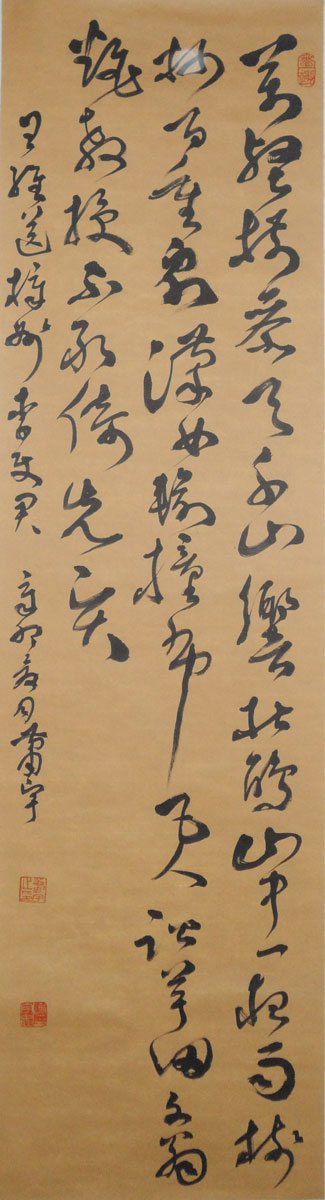 萬壑樹參天千山響杜鵑山中一夜雨樹
杪百重泉漢女輸橦布巴人訟芋田文翁
翻教授不敢倚先賢
王維送梓州李使君